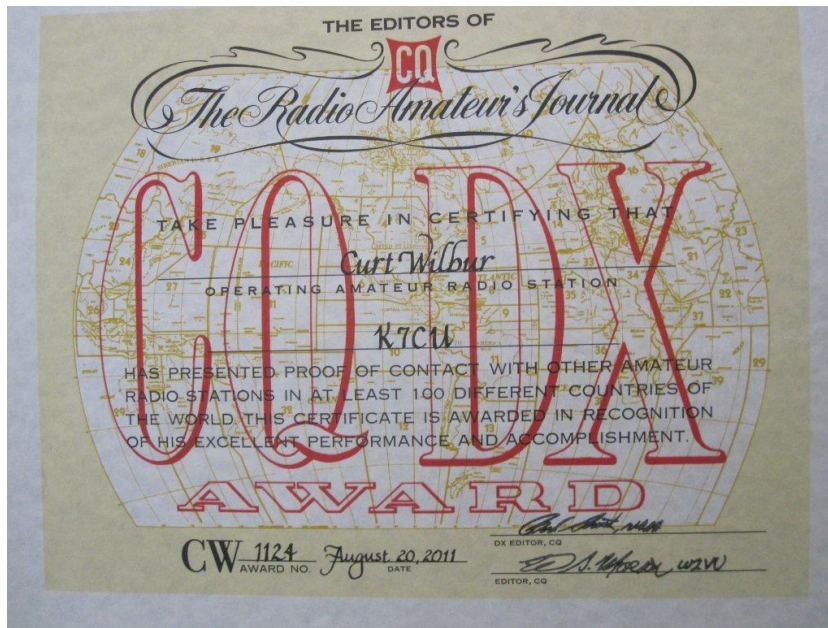 THE EDITORS OF
CQ
The Radio Amateur's Journal
CQ DX
TAKE PLEASURE IN CERTIFYING THAT
Curt Wilbur
OPERATING AMATEUR RADIO STATION
K7CU
HAS PRESENTED PROOF OF CONTACT WITH OTHER AMATEUR
RADIO STATIONS IN AT LEAST 100 DIFFERENT COUNTRIES OF
THE WORLD. THIS CERTIFICATE IS AWARDED IN RECOGNITION
OF HIS EXCELLENT PERFORMANCE AND ACCOMPLISHMENT.
AWARD
CW 1124 August 20, 2011
AWARD NO. DATE
DX EDITOR, CQ
W2VU
EDITOR, CQ